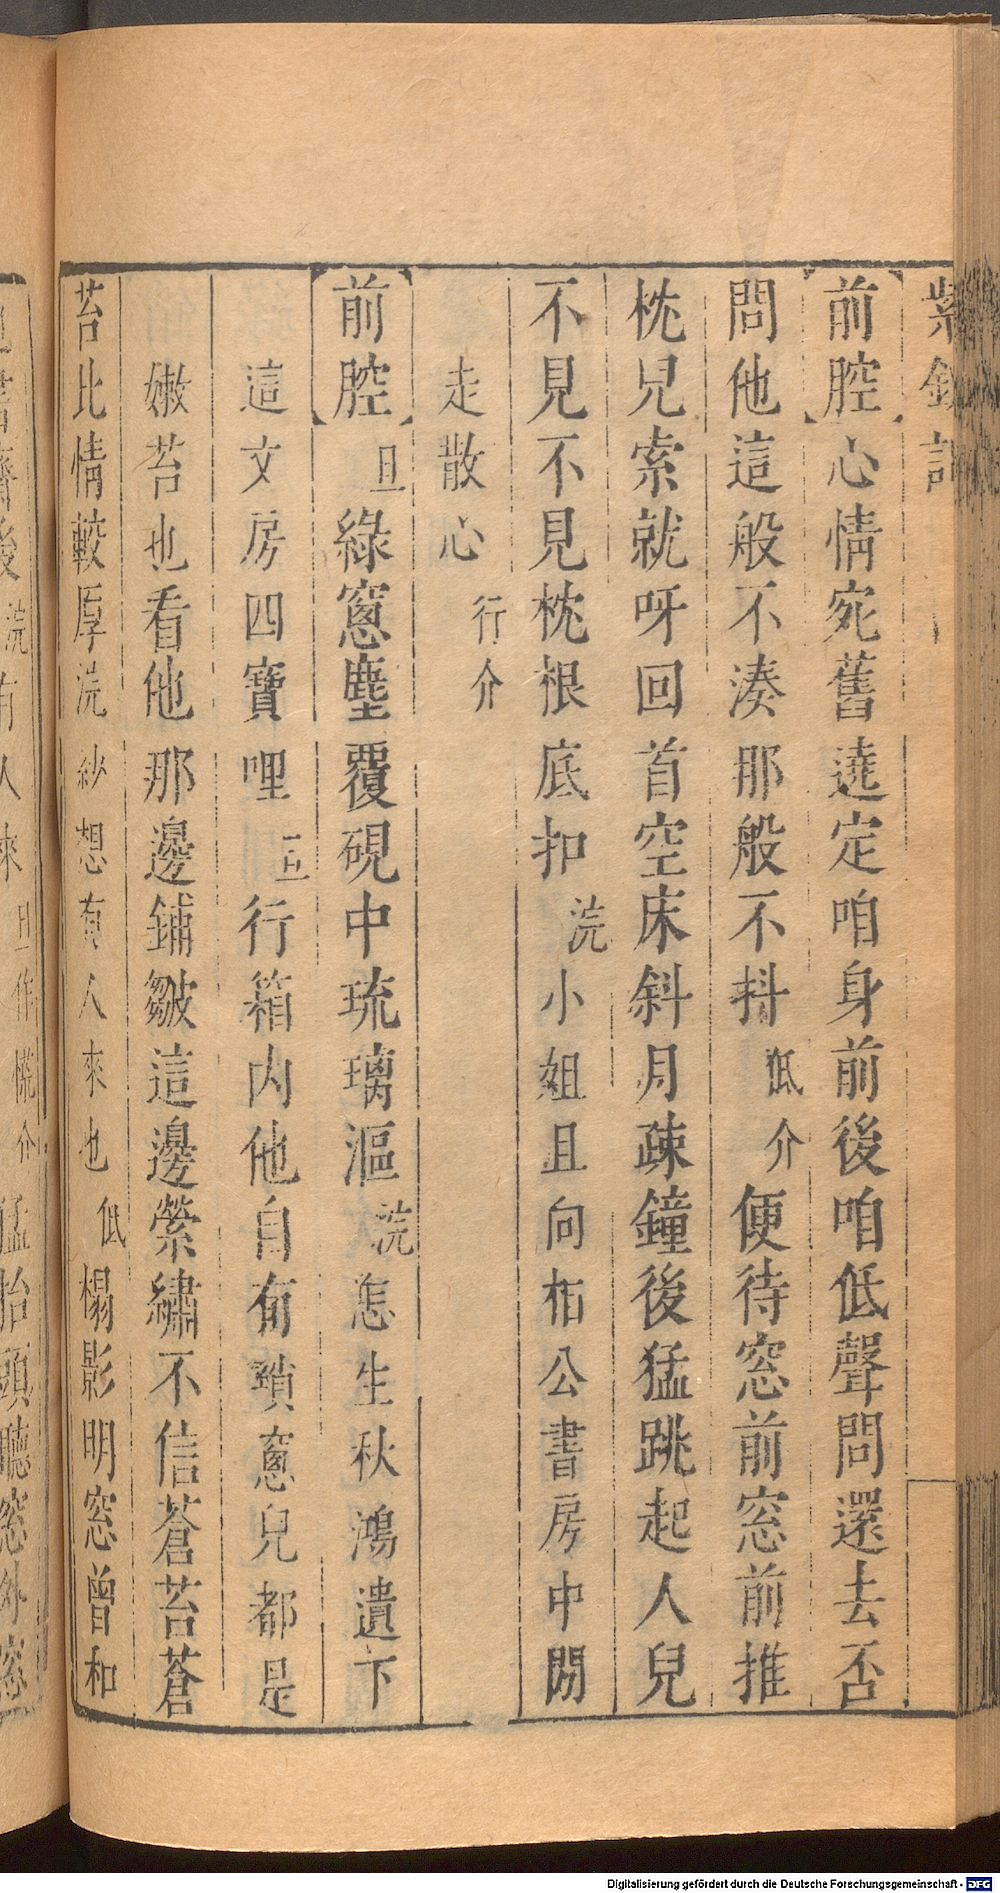 紫釵記
前腔心情宛舊遶定咱身前後咱低聲問還去否
問他這般不湊那般不抖低介便待窓前窓前推
枕兒索就呀回首空床斜月疎鐘後猛跳起人兒
不見不見枕根底扣浣小姐且向相公書房中閒
走散心行介
前腔旦綠窻塵覆硯中琉璃漚浣怎生秋鴻遺下
這文房四寶哩旦行箱内他自有瑣窻兒都是
嫩苔也看他那邊鋪皺這邊縈繡不信蒼苔蒼
苔比情較厚浣紗想有人來也低榻影明窓曾和
後浣有人來旦作慌介猛抬頭聽窓外窓
Digitalisierung gefördert durch die Deutsche Forschungsgemeinschaft - DFG